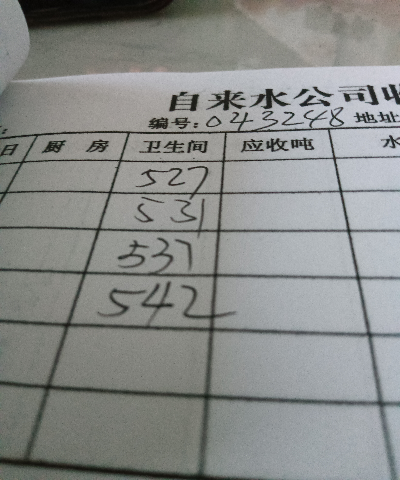 自来水公司收
编号:043248 地址
日 厨房 卫生间 应收吨 水
527
531
537
542